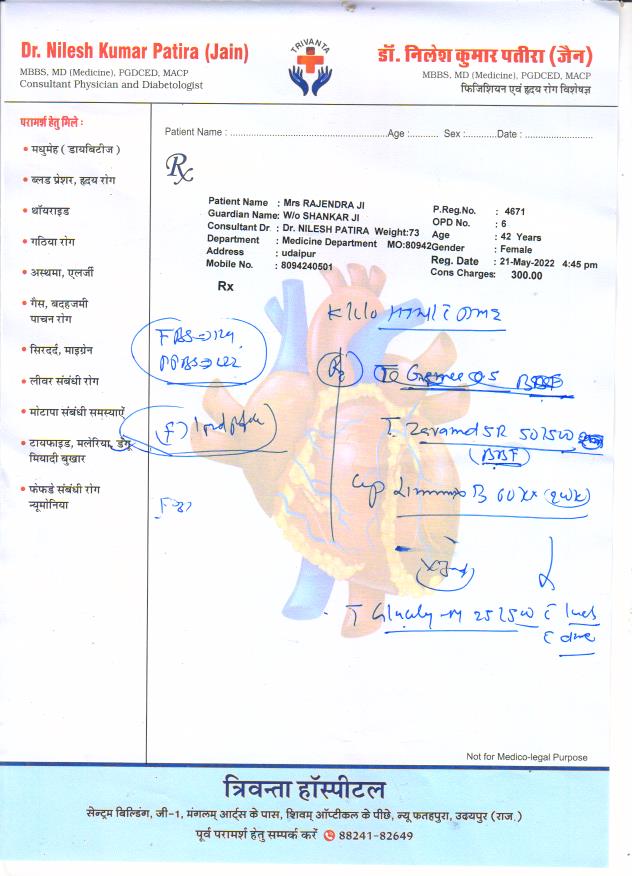 Dr. Nilesh Kumar Patira (Jain)
MBBS, MD (Medicine), PGDCED, MACP
Consultant Physician and Diabetologist
TRIVANTA
डॉ. निलेश कुमार पतीरा (जैन)
MBBS, MD (Medicine), PGDCED, MACP
फिजिशियन एवं हृदय रोग विशेषज्ञ
परामर्श हेतु मिले :
• मधुमेह ( डायबिटीज )
• ब्लड प्रेशर, हृदय रोग
• थॉयराइड
• गठिया रोग
• अस्थमा, एलर्जी
• गैस, बदहजमी
पाचन रोग
• सिरदर्द, माइग्रेन
• लीवर संबंधी रोग
• मोटापा संबंधी समस्याएँ
• टायफाइड, मलेरिया, डेंगू
मियादी बुखार
• फेफडे संबंधी रोग
न्यूमोनिया
Patient Name : Age : Sex : Date :
Rx
Patient Name : Mrs RAJENDRA JI
Guardian Name: W/o SHANKAR JI
Consultant Dr : Dr. NILESH PATIRA Weight:73
Department : Medicine Department MO:80942
Address : udaipur
Mobile No. : 8094240501
P.Reg.No. : 4671
OPD No. : 6
Age : 42 Years
Gender : Female
Reg. Date : 21-May-2022 4:45 pm
Cons Charges: 300.00
Rx
FBS → 129
PPBS → 122
K/c/o
BBF
T. SR 50
(BBF)
Cap B
T M 25
Not for Medico-legal Purpose
त्रिवन्ता हॉस्पीटल
सेन्ट्रम बिल्डिंग, जी-1, मंगलम् आर्ट्स के पास, शिवम् ऑप्टीकल के पीछे, न्यू फतहपुरा, उदयपुर (राज.)
पूर्व परामर्श हेतु सम्पर्क करें 88241-82649